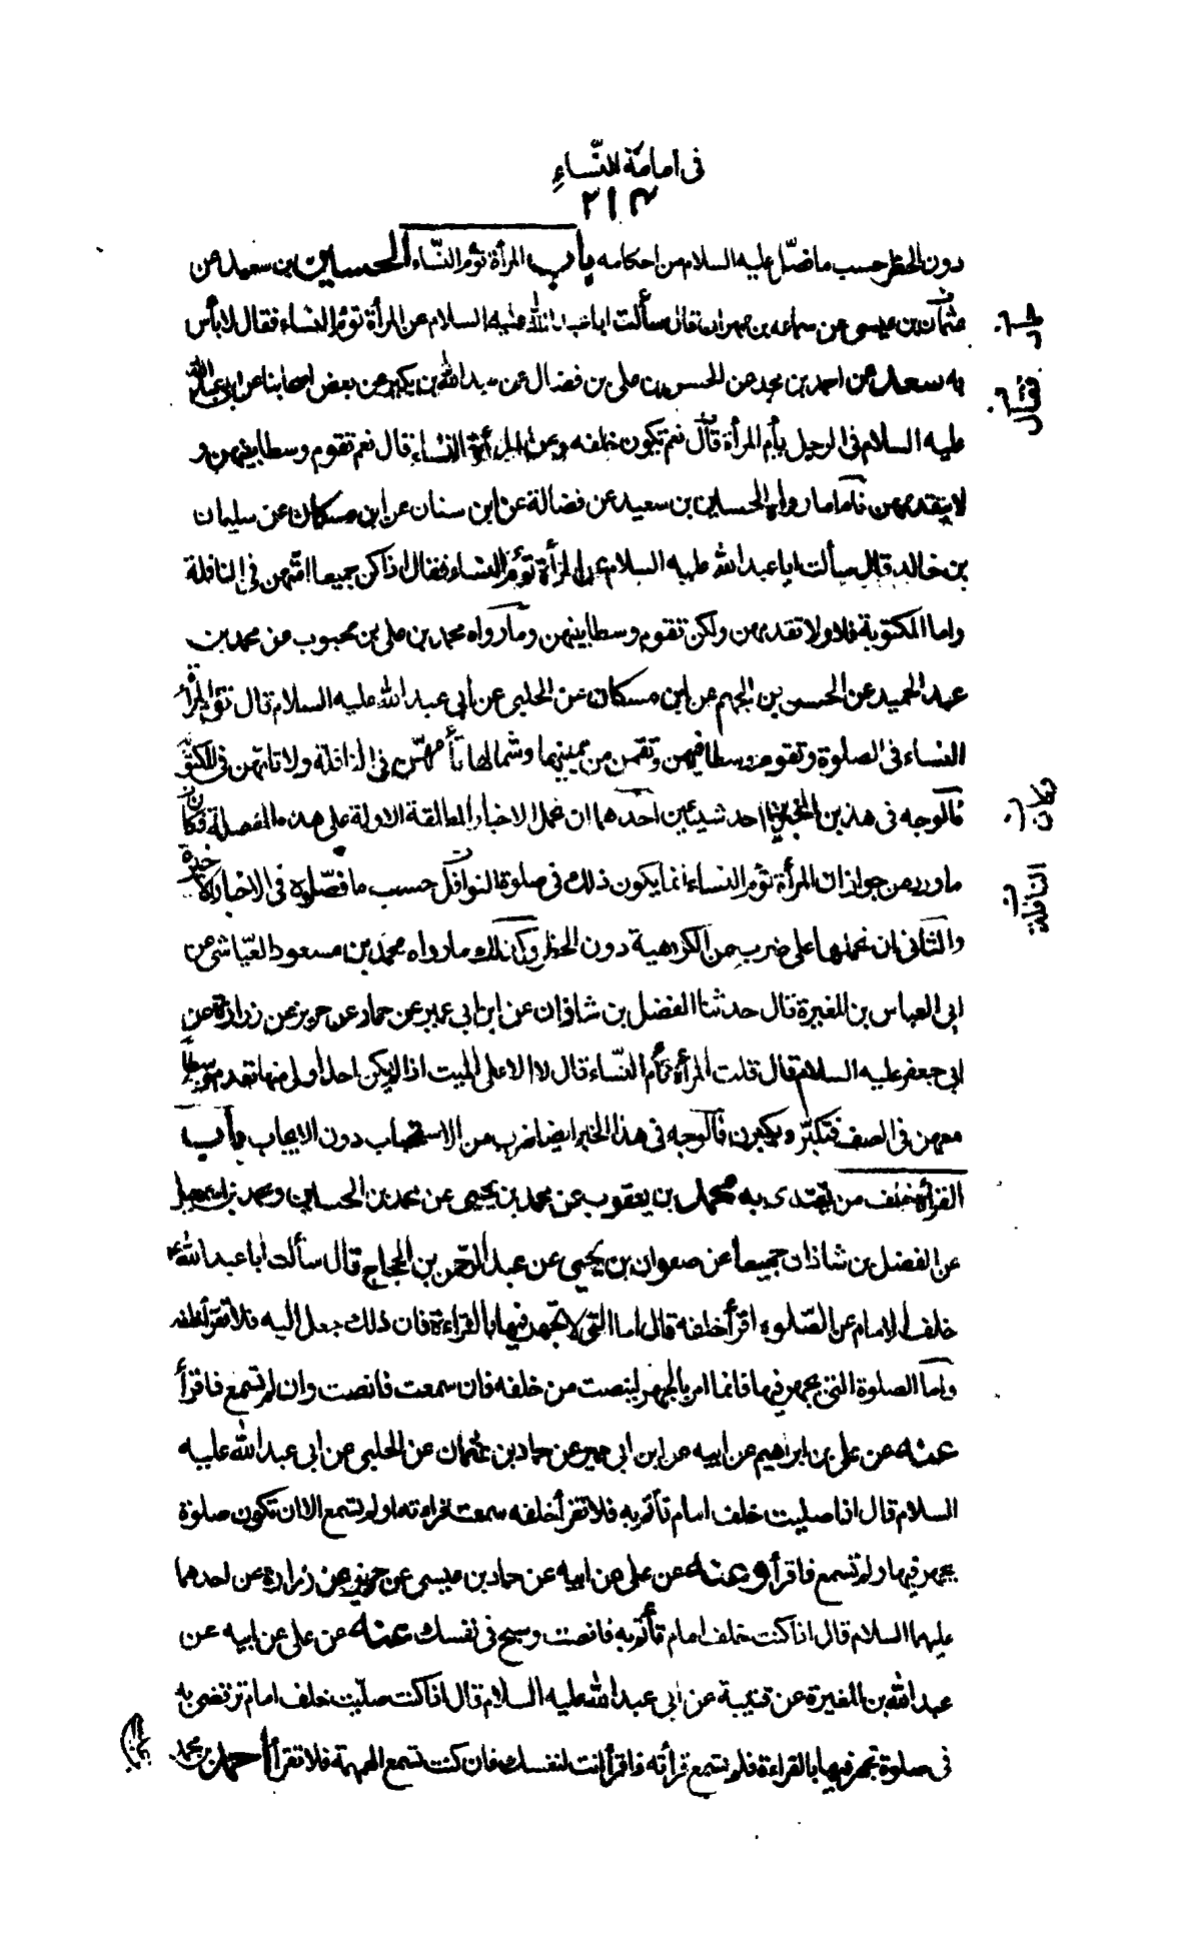 فى امامة النّساءِ
٢١٣
دون الحظر حسب ما فصّل عليه السلام من احكامه باب المرأة تؤم النّساء الحسين بن سعيد عن
عثمان بن عيسى عن سماعه بن مهران قال سألت ابا عبد الله عليه السلام عن المرأة تؤم النساء فقال لا بأس
به سعد عن احمد بن محمد عن الحسن بن على بن فضال عن عبد الله بن بكير عن بعض اصحابنا عن ابى عبد الله
عليه السلام فى الرجل يأم المرأة قال نعم تكون خلفه وعن المرأة تؤم النساء قال نعم تقوم وسطا بينهن و
لا يتقدمهن فاما ما رواه الحسين بن سعيد عن فضالة عن ابن سنان عن ابن مسكان عن سليمان
بن خالد قال سألت ابا عبد الله عليه السلام عن المرأة تؤم النساء فقال اذا كن جميعا امّتهن فى النافلة
واما المكتوبة فلا ولا تقدمهن ولكن تقوم وسطا بينهن وما رواه محمد بن على بن محبوب عن محمد بن
عبد الحميد عن الحسن بن الجهم عن ابن مسكان عن الحلبى عن أبى عبد الله عليه السلام قال تؤم المرأة
النساء فى الصلوة وتقوم وسطا فيهن وتقمن من يمينها وشمالها تأمهنّ فى النافلة ولا تأمهن فى المكتوبة
فالوجه فى هذين الخبرين احد شيئين احدهما ان نحمل الاخبار المطلقة الاولة على هذه المفصلة فكان
ما ورد من جواز ان المرأة تؤم النساء انما يكون ذلك فى صلوة النوافل حسب ما فصّلوه فى الاخبار الاخيرة
والثانى ان نحملها على ضرب من الكراهية دون الحظر وكذلك ما رواه محمد بن مسعود العيّاشى عن
ابى العباس بن المغيرة قال حدثنا الفضل بن شاذان عن ابن ابى عمير عن حماد عن حريز عن زرارة عن
ابى جعفر عليه السلام قال قلت المرأة تأم النّساء قال لا الا على الميت اذا لم يكن احد اولى منها تقدم وسطا
معهن فى الصف فتكبّر ويكبرن فالوجه فى هذا الخبر ايضا ضرب من الاستحباب دون الايجاب باب
القرأة خلف من يقتدى به محمد بن يعقوب عن محمد بن يحيى عن محمد بن الحسين ومحمد بن اسمعيل
عن الفضل بن شاذان جميعا عن صفوان بن يحيى عن عبد الرّحمن بن الحجاج قال سألت ابا عبد الله ع
خلف الامام عن الصّلوة اقرأ خلفه قال اما التى لا تجهر فيها بالقراءة فان ذلك جعل اليه فلا تقرأ خلفه
واما الصلوة التى يجهر فيها فانما امر بالجهر لينصت من خلفه فان سمعت فانصت وان لم تسمع فاقرأ
عنه عن على بن ابراهيم عن ابيه عن ابن ابى عمير عن حماد بن عثمان عن الحلبى عن ابى عبد الله عليه
السلام قال اذا صليت خلف امام تأتم به فلا تقرأ خلفه سمعت قراءته او لم تسمع الا ان تكون صلوة
يجهر فيها ولم تسمع فاقرأ وعنه عن على عن ابيه عن حماد بن عيسى عن حريز عن زرارة عن احدهما
عليهما السلام قال اذا كنت خلف امام تأتم به فانصت وسبح فى نفسك عنه عن على عن ابيه عن
عبد الله بن المغيرة عن قتيبة عن ابى عبد الله عليه السلام قال اذا كنت صلّيت خلف امام ترتضى به
فى صلوة تجهر فيها بالقراءة فلم تسمع قرأته فاقرأ انت لنفسك فان كنت تسمع الهمهمة فلا تقرأ احمد بن محمد
فقال
وكان
النافلة